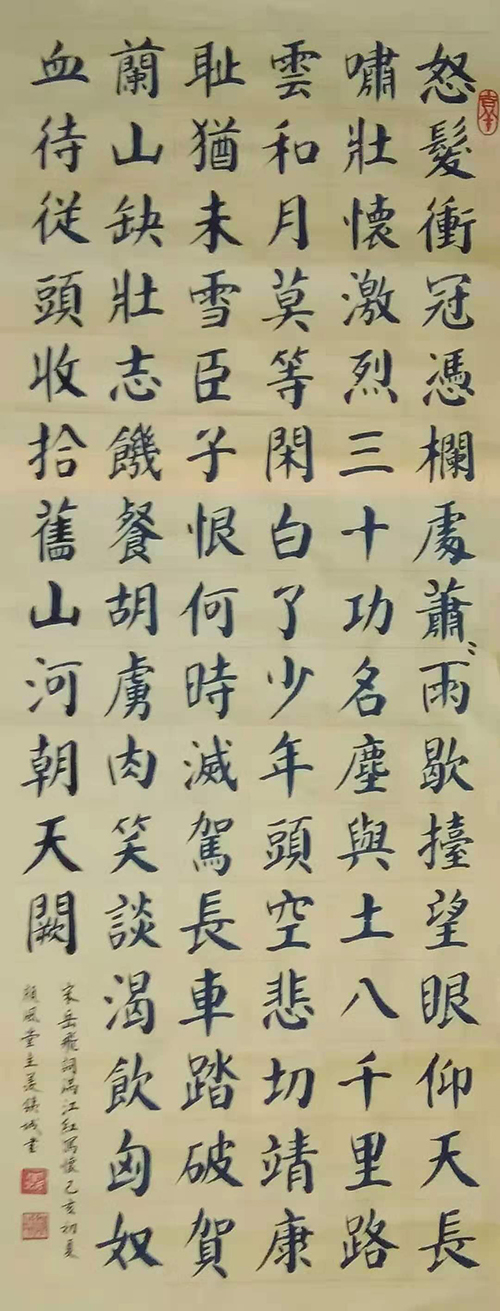 怒髮衝冠憑欄處蕭〻雨歇擡望眼仰天長
嘯壯懷激烈三十功名塵與土八千里路
雲和月莫等閑白了少年頭空悲切靖康
耻猶未雪臣子恨何時滅駕長車踏破賀
蘭山缺壯志饑餐胡虜肉笑談渴飲匈奴
血待従頭收拾舊山河朝天闕
宋岳飛詞滿江紅寫懷己亥初夏
風堂主姜書